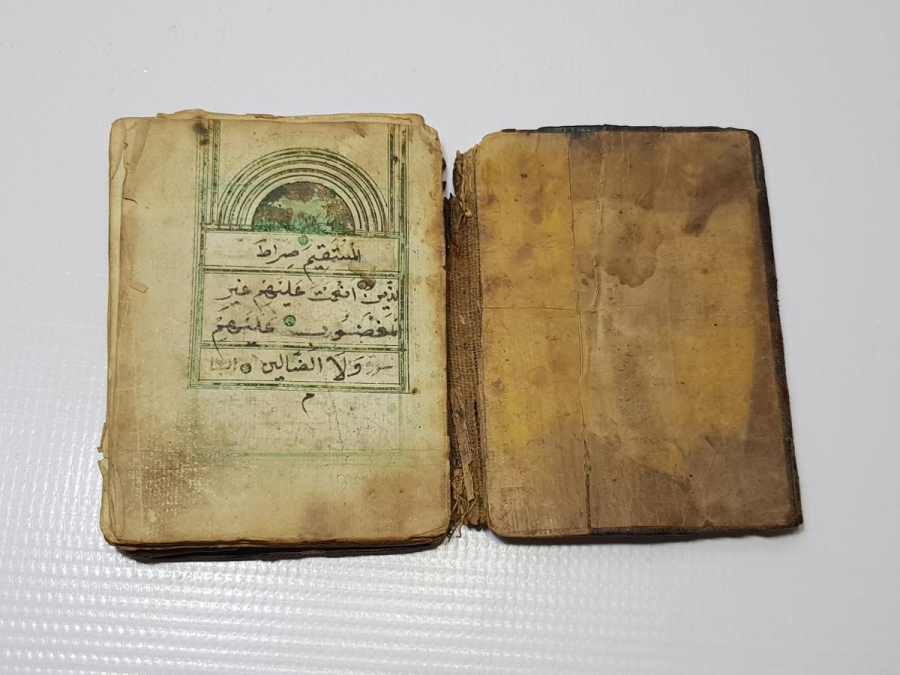 المُسْتَقِيمَ صِرَاطَ
الَّذِينَ انْعَمْتَ عَلَيْهِمْ غَيْرِ
الْمَغْضُوبِ عَلَيْهِمْ
وَلَا الضَّالِّينَ
م